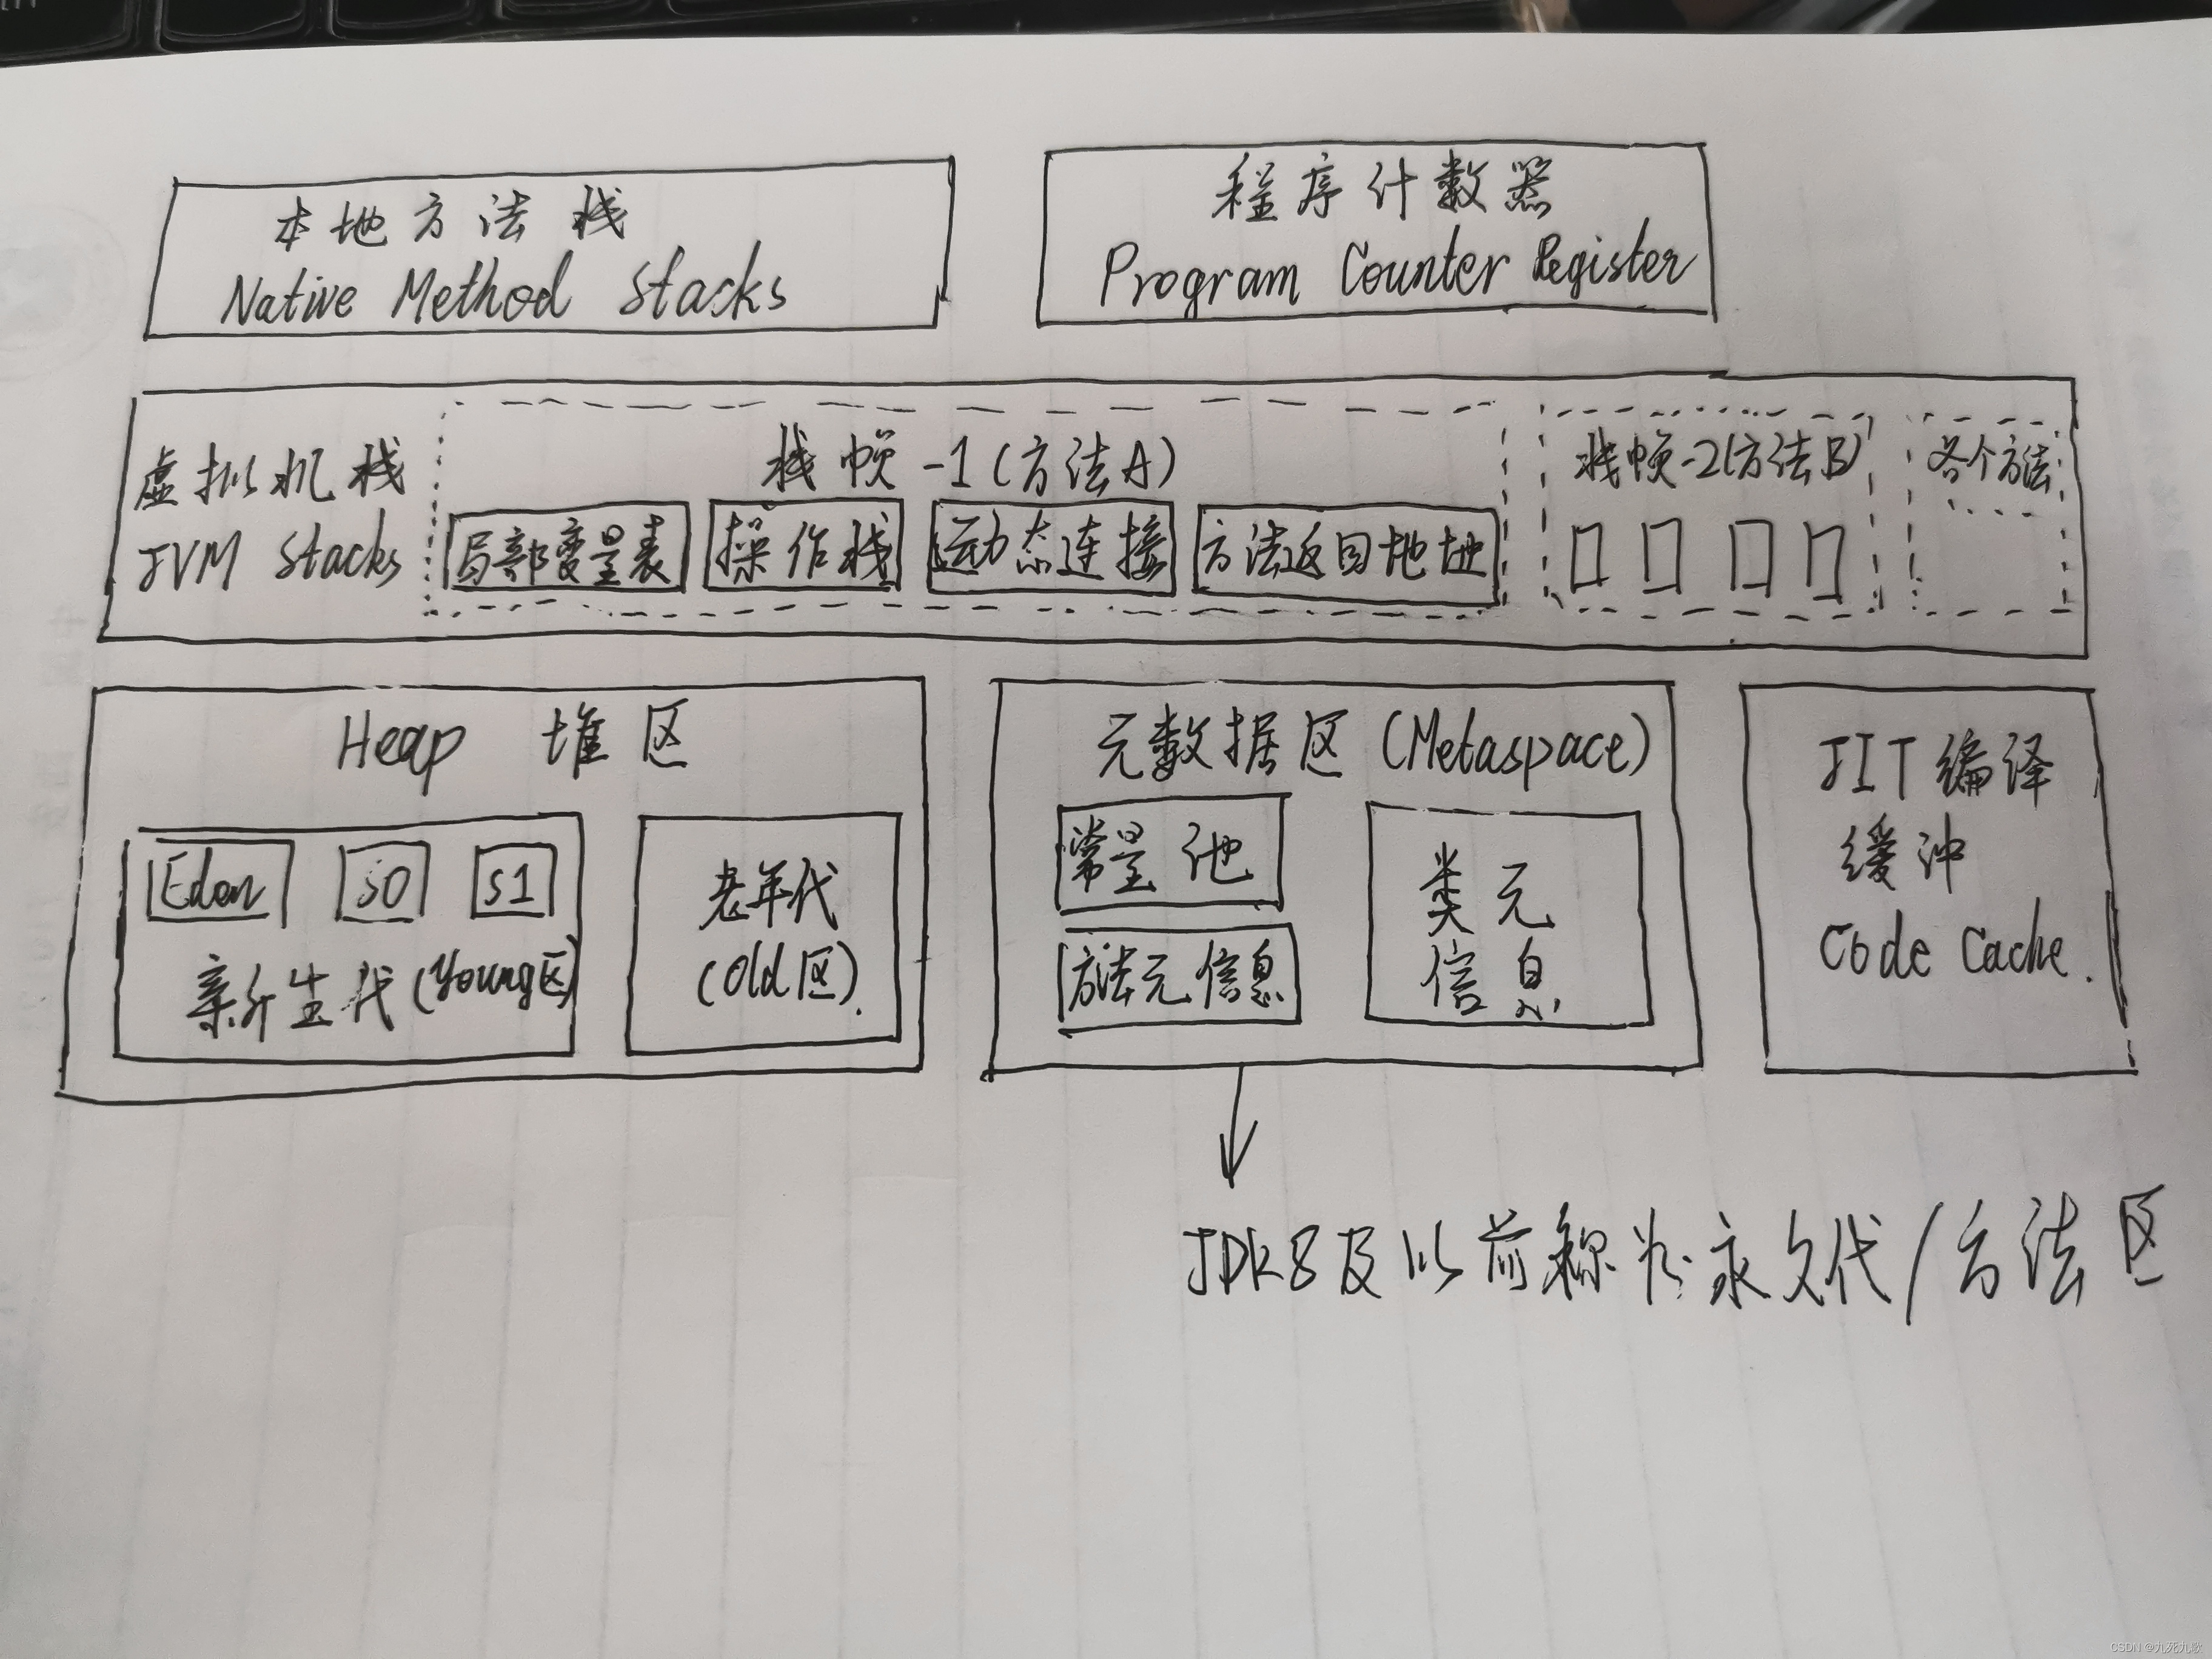 本地方法栈
Native Method Stacks
程序计数器
Program Counter Register
虚拟机栈
JVM Stacks
栈帧-1(方法A)
局部变量表
操作栈
动态连接
方法返回地址
栈帧-2(方法B)
各个方法
......
Heap 堆区
Eden
S0
S1
新生代(Young区)
老年代
(Old区)
元数据区(Metaspace)
常量池
方法元信息
类元
信息
JIT编译
缓冲
Code Cache.
JDK8及以前称为永久代/方法区
CSDN @九死九歌